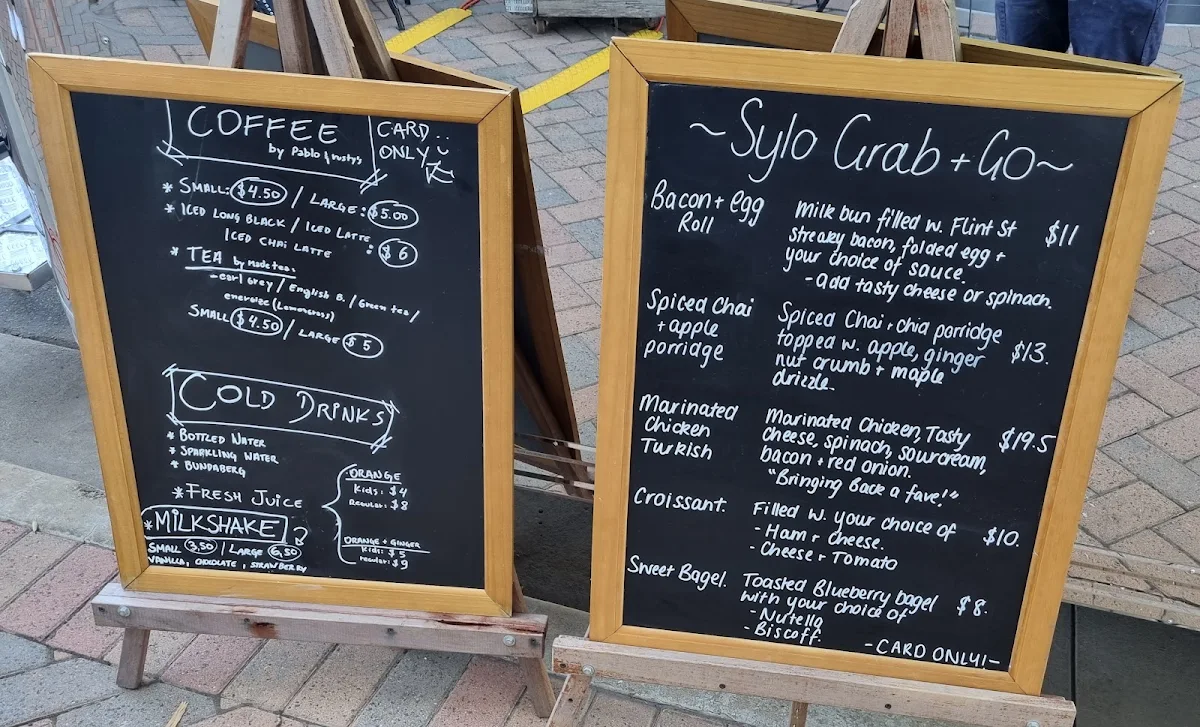 COFFEE
by Pablo & rusty's
CARD..
ONLY
* SMALL: $4.50 / LARGE: $5.00
* ICED LONG BLACK / ICED LATTE
ICED CHAI LATTE : $6
* TEA by Mode tea.
- earl Grey / English B. / Green tea /
energise (Lemongrass)
SMALL $4.50 / LARGE $5
COLD DRINKS
* BOTTLED WATER
* SPARKLING WATER
* BUNDABERG
* FRESH JUICE
ORANGE
Kids: $4
Regular: $8
ORANGE + GINGER
Kids: $5
regular: $9
* MILKSHAKE
SMALL 3,50 / LARGE 6,50
VANILLA, CHOCOLATE, STRAWBERRY
~ Sylo Grab + GO ~
Bacon + egg
Roll
Milk bun filled w. Flint St
streaky bacon, folded egg +
your choice of sauce.
- add tasty cheese or spinach.
$11
Spiced Chai
+ apple
porridge
Spiced Chai + chia porridge
topped w. apple, ginger
nut crumb + maple
drizzle.
$13.
Marinated
Chicken
Turkish
Marinated Chicken, Tasty
cheese, spinach, sourcream,
bacon + red onion.
"Bringing Back a fave!"
$19.5
Croissant.
Filled w. your choice of
- Ham + cheese.
- Cheese + Tomato
$10.
Sweet Bagel.
Toasted Blueberry bagel
with your choice of
- Nutella
- Biscoff.
$8.
- CARD ONLY! -